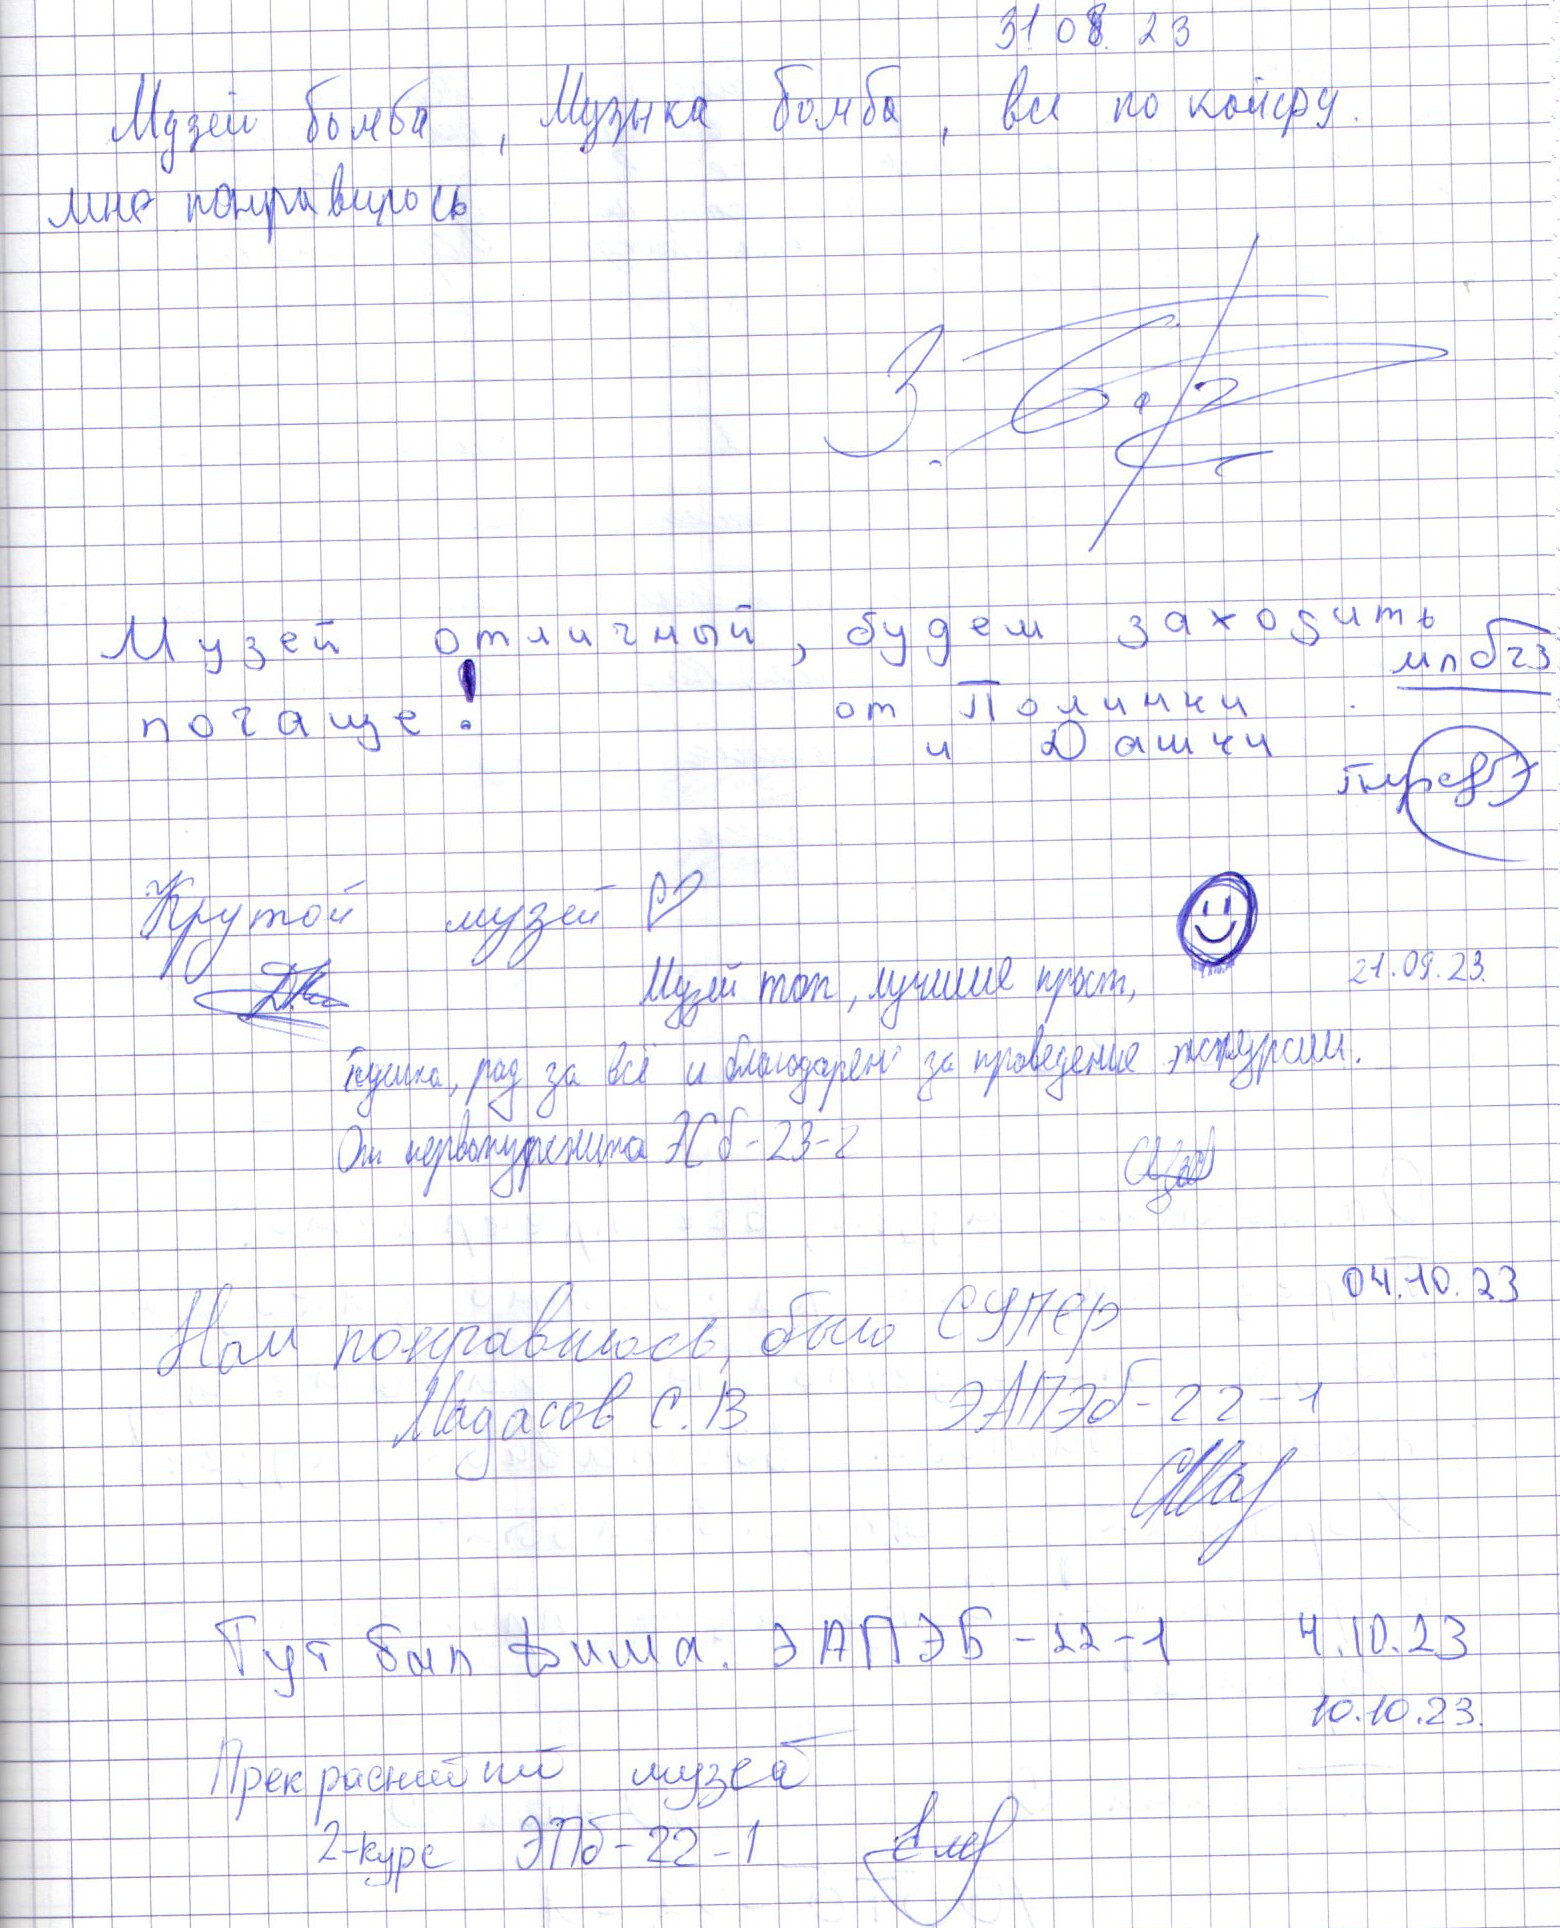 31.08.23
Музей бомба, Музыка бомба, все по кайфу.
мне понравилось
Музей отличный, будем заходить
почаще!
от Полинки
и Дашки
Крутой музей ♡
21.09.23.
Музей топ, лучшие прост,
пушка, рад за всё и благодарен за проведение экскурсии.
От первокурсника ЭСб-23-2
04.10.23
Нам понравилось, было СУПЕР
Мадасов С.В ЭАПЭб-22-1
Тут был Дима. ЭАПЭБ-22-1 4.10.23
10.10.23.
Прекраснейший музей
2-курс ЭПб-22-1